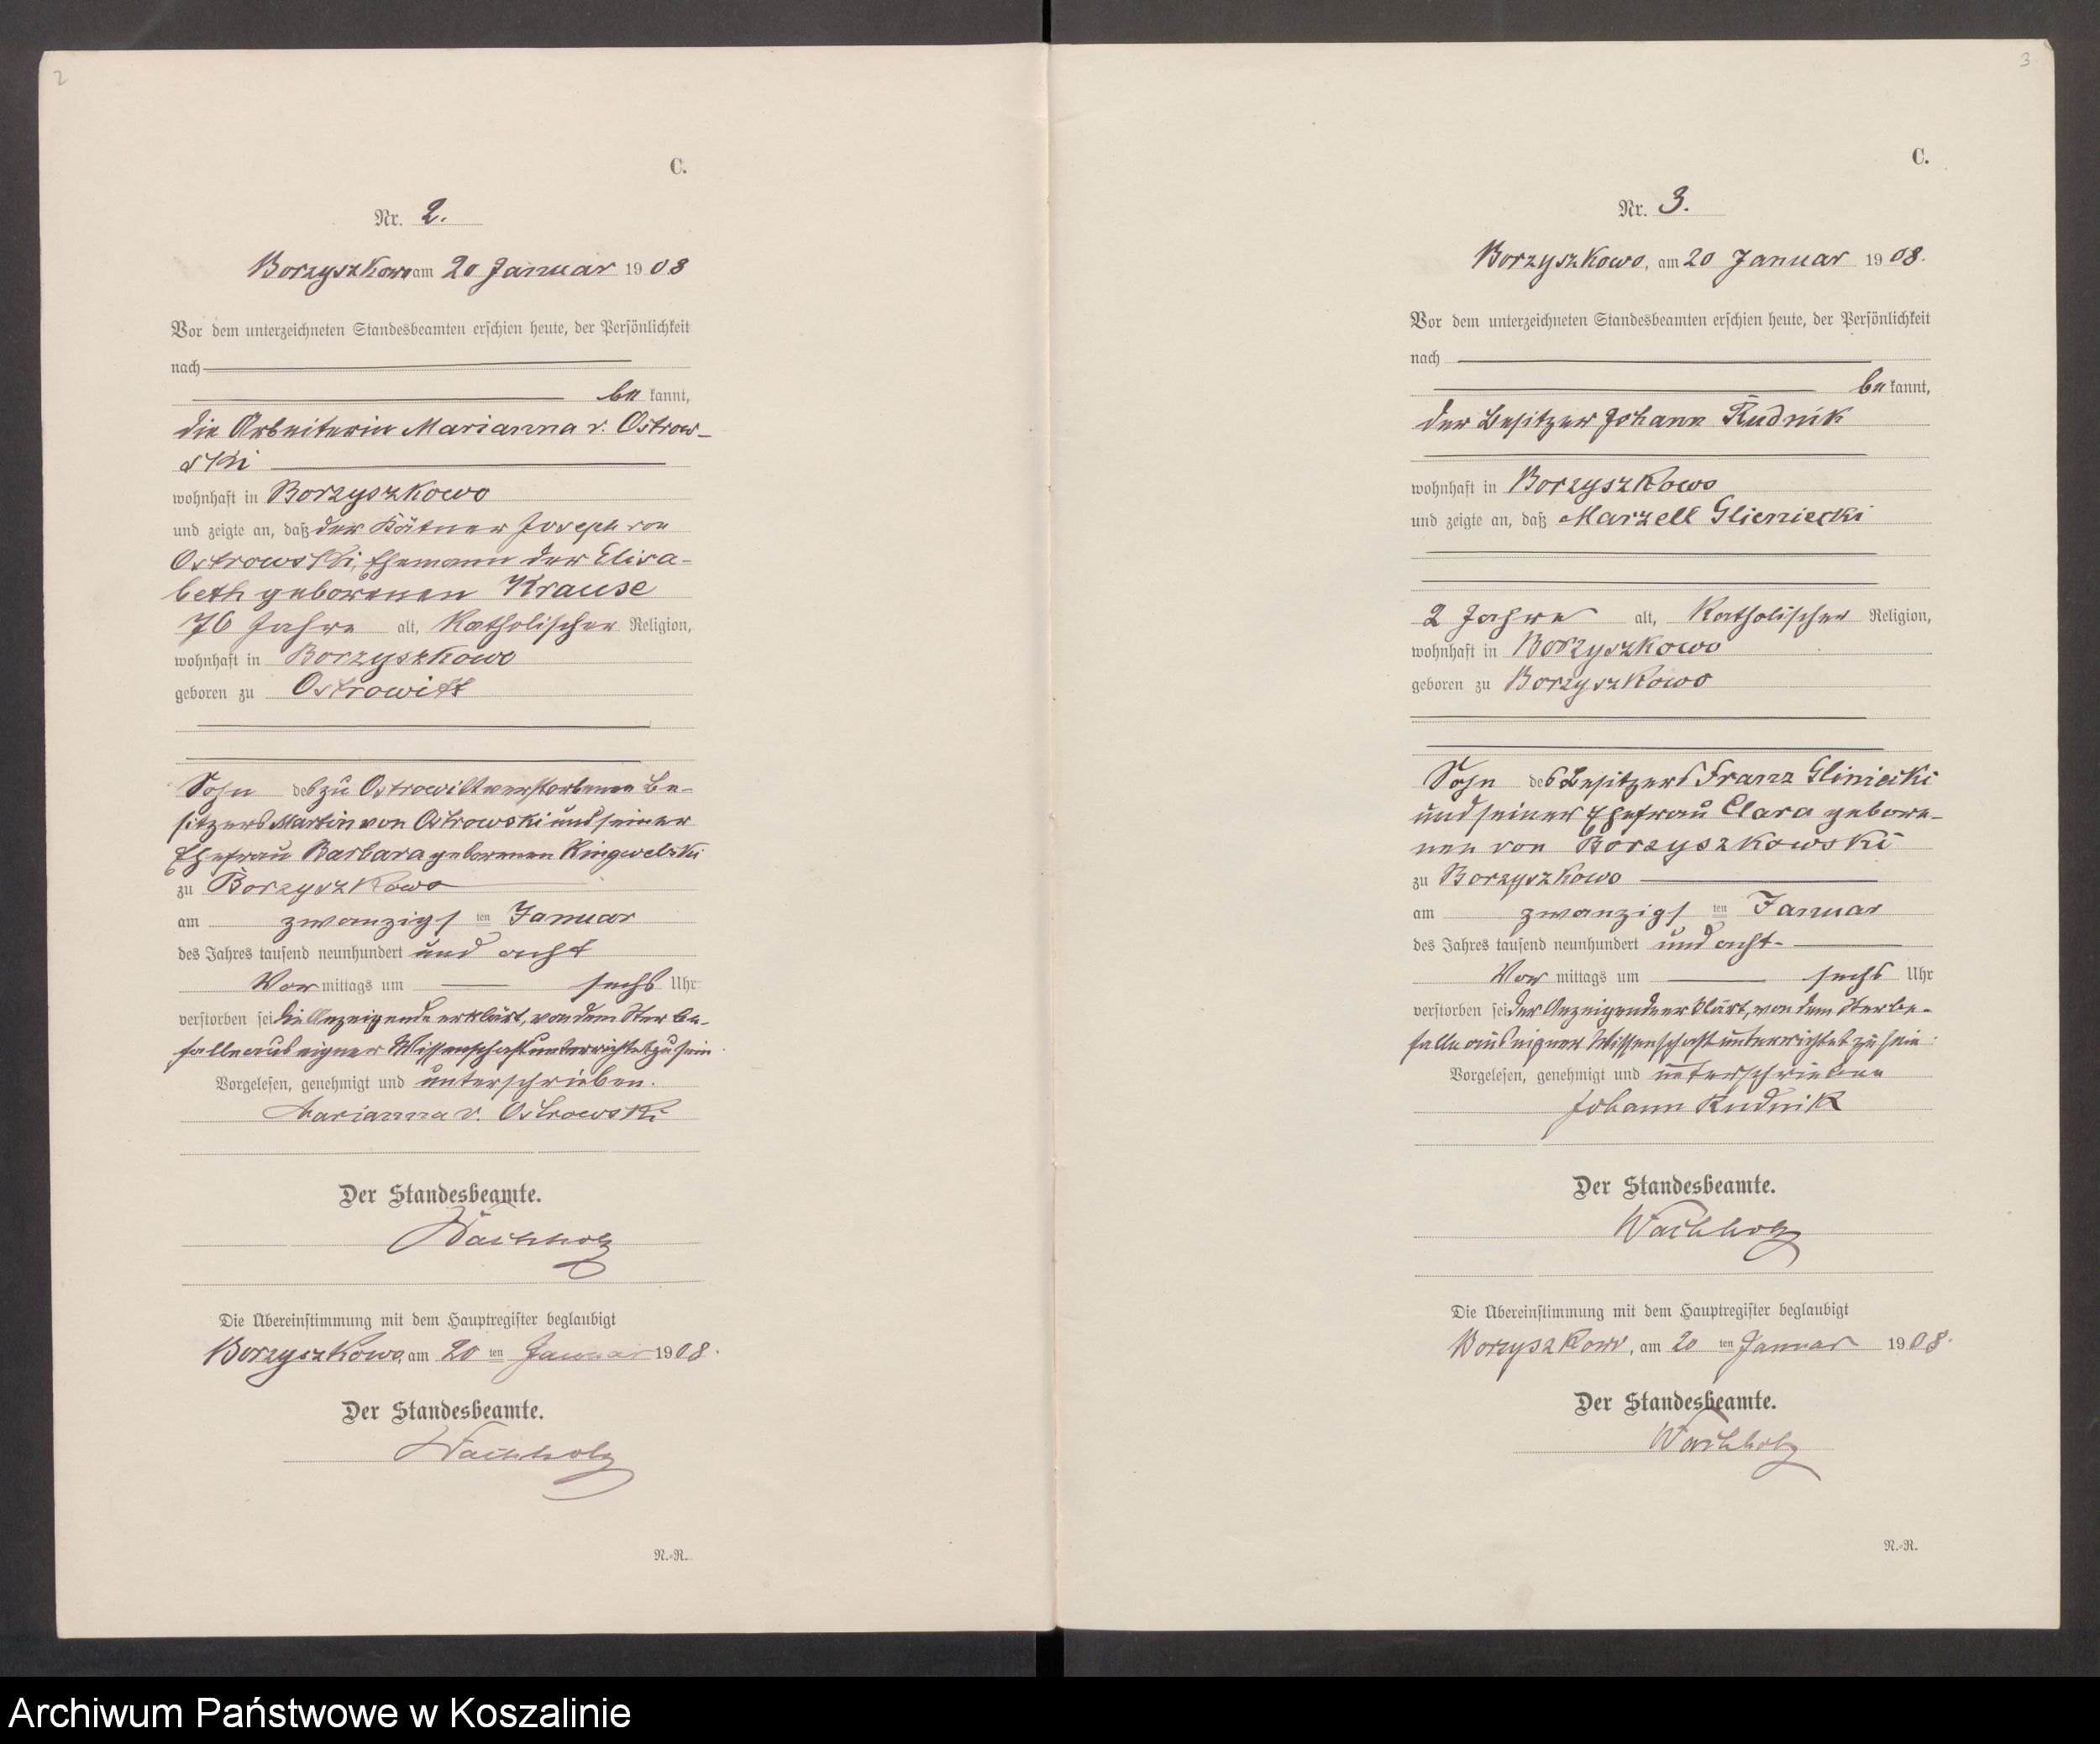 2
C.
Nr. 2.
Borzyszkowo am 20 Januar 1908
Vor dem unterzeichneten Standesbeamten erschien heute, der Persönlichkeit
nach
be kannt,
die Arbeiterin Marianna v. Ostrow-
ski
wohnhaft in Borzyszkowo
und zeigte an, daß der Kätner Joseph von
Ostrowski, Ehemann der Elisa-
beth geborenen Krause
76 Jahre alt, Katholischer Religion,
wohnhaft in Borzyszkowo
geboren zu Ostrowitt
Sohn des zu Ostrowitt verstorbenen Be-
sitzers Martin von Ostrowski und seiner
Ehefrau Barbara geborenen
zu Borzyszkowo
am zwanzigsten Januar
des Jahres tausend neunhundert und acht
Vor mittags um sechs Uhr
verstorben sei die Anzeigende erklärt, von dem Sterbe-
falle aus eigner Wissenschaft unterrichtet zu sein.
Vorgelesen, genehmigt und unterschrieben.
Marianna v. Ostrowski
Der Standesbeamte.
Wachholz
Die Übereinstimmung mit dem Hauptregister beglaubigt
Borzyszkowo, am 20 ten Januar 1908.
Der Standesbeamte.
Wachholz
N.-R.
3
C.
Nr. 3.
Borzyszkowo, am 20 Januar 1908.
Vor dem unterzeichneten Standesbeamten erschien heute, der Persönlichkeit
nach
be kannt,
der Besitzer Johann Rudnik
wohnhaft in Borzyszkowo
und zeigte an, daß Marzell Glieniecki
2 Jahre alt, Katholischer Religion,
wohnhaft in Borzyszkowo
geboren zu Borzyszkowo
Sohn des Besitzers Franz Gliniecki
und seiner Ehefrau Clara gebore-
nen von Borzyszkowski
zu Borzyszkowo
am zwanzigsten Januar
des Jahres tausend neunhundert und acht-
Vor mittags um sechs Uhr
verstorben sei der Anzeigende erklärt, von dem Sterbe-
falle aus eigner Wissenschaft unterrichtet zu sein.
Vorgelesen, genehmigt und unterschrieben
Johann Rudnik
Der Standesbeamte.
Wachholz
Die Übereinstimmung mit dem Hauptregister beglaubigt
Borzyszkowo, am 20 ten Januar 1908.
Der Standesbeamte.
Wachholz
N.-R.
Archiwum Państwowe w Koszalinie